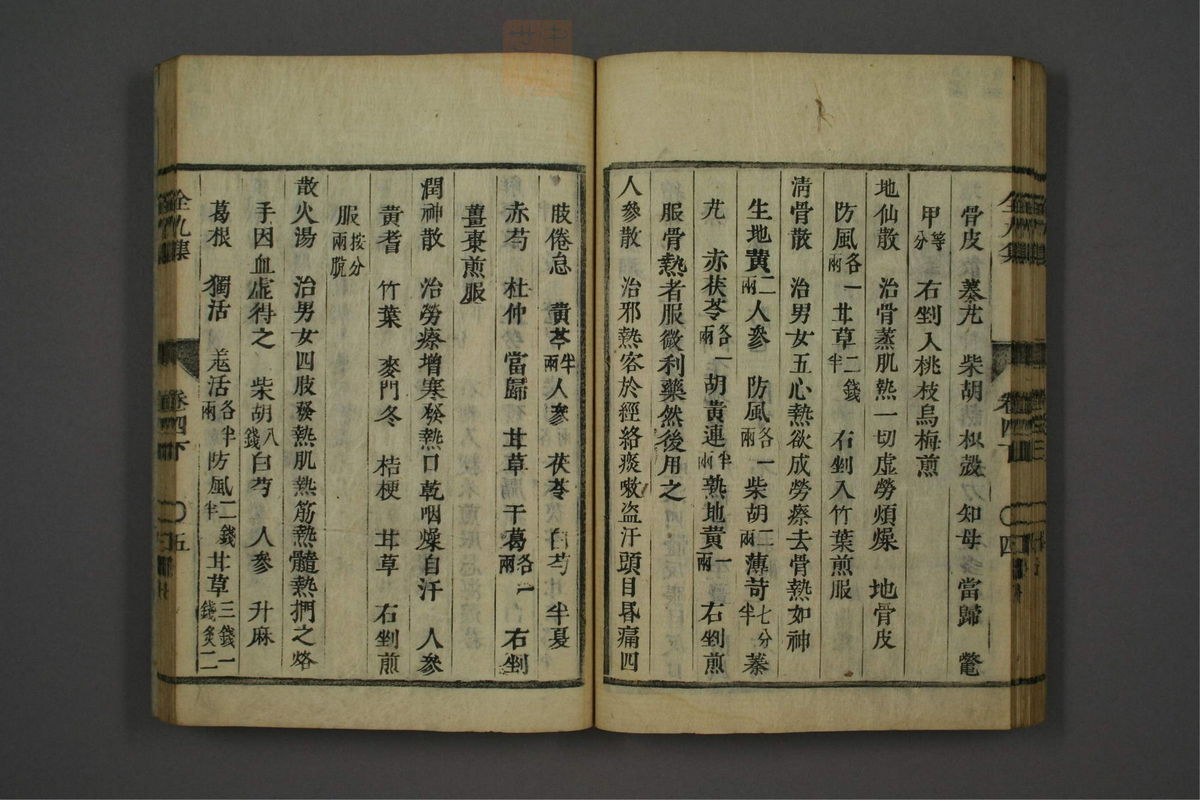 骨皮 蓁艽 柴胡 枳殻 知母 當歸 鼈
甲等分 右剉入桃枝烏梅煎
地仙散 治骨蒸肌熱一切虚勞煩燥 地骨皮
防風各一兩 甘草二錢半 右剉入竹葉煎服
淸骨散 治男女五心熱欲成勞瘵去骨熱如神
生地黄二兩 人參 防風各一兩 柴胡二兩 薄苛七分半 蓁
艽 赤茯苓各一兩 胡黄連半兩 熟地黄一兩 右剉煎
服骨熱者服微利藥然後用之
人參散 治邪熱客於經絡痰嗽盗汗頭目昬痛四
全九集 卷四下 〇四
肢倦怠 黄芩半兩 人參 茯苓 白芍 半夏
赤芍 杜仲 當歸 甘草 干葛各一兩 右剉
薑棗煎服
潤神散 治勞瘵增寒發熱口乾咽燥自汗 人參
黄耆 竹葉 麥門冬 桔梗 甘草 右剉煎
服按分兩脫
散火湯 治男女四肢發熱肌熱筋熱髓熱捫之烙
手因血虚得之 柴胡八錢 白芍 人參 升麻
葛根 獨活 羗活各半兩 防風二錢半 甘草三錢一錢炙二
全九集 卷四下 〇五